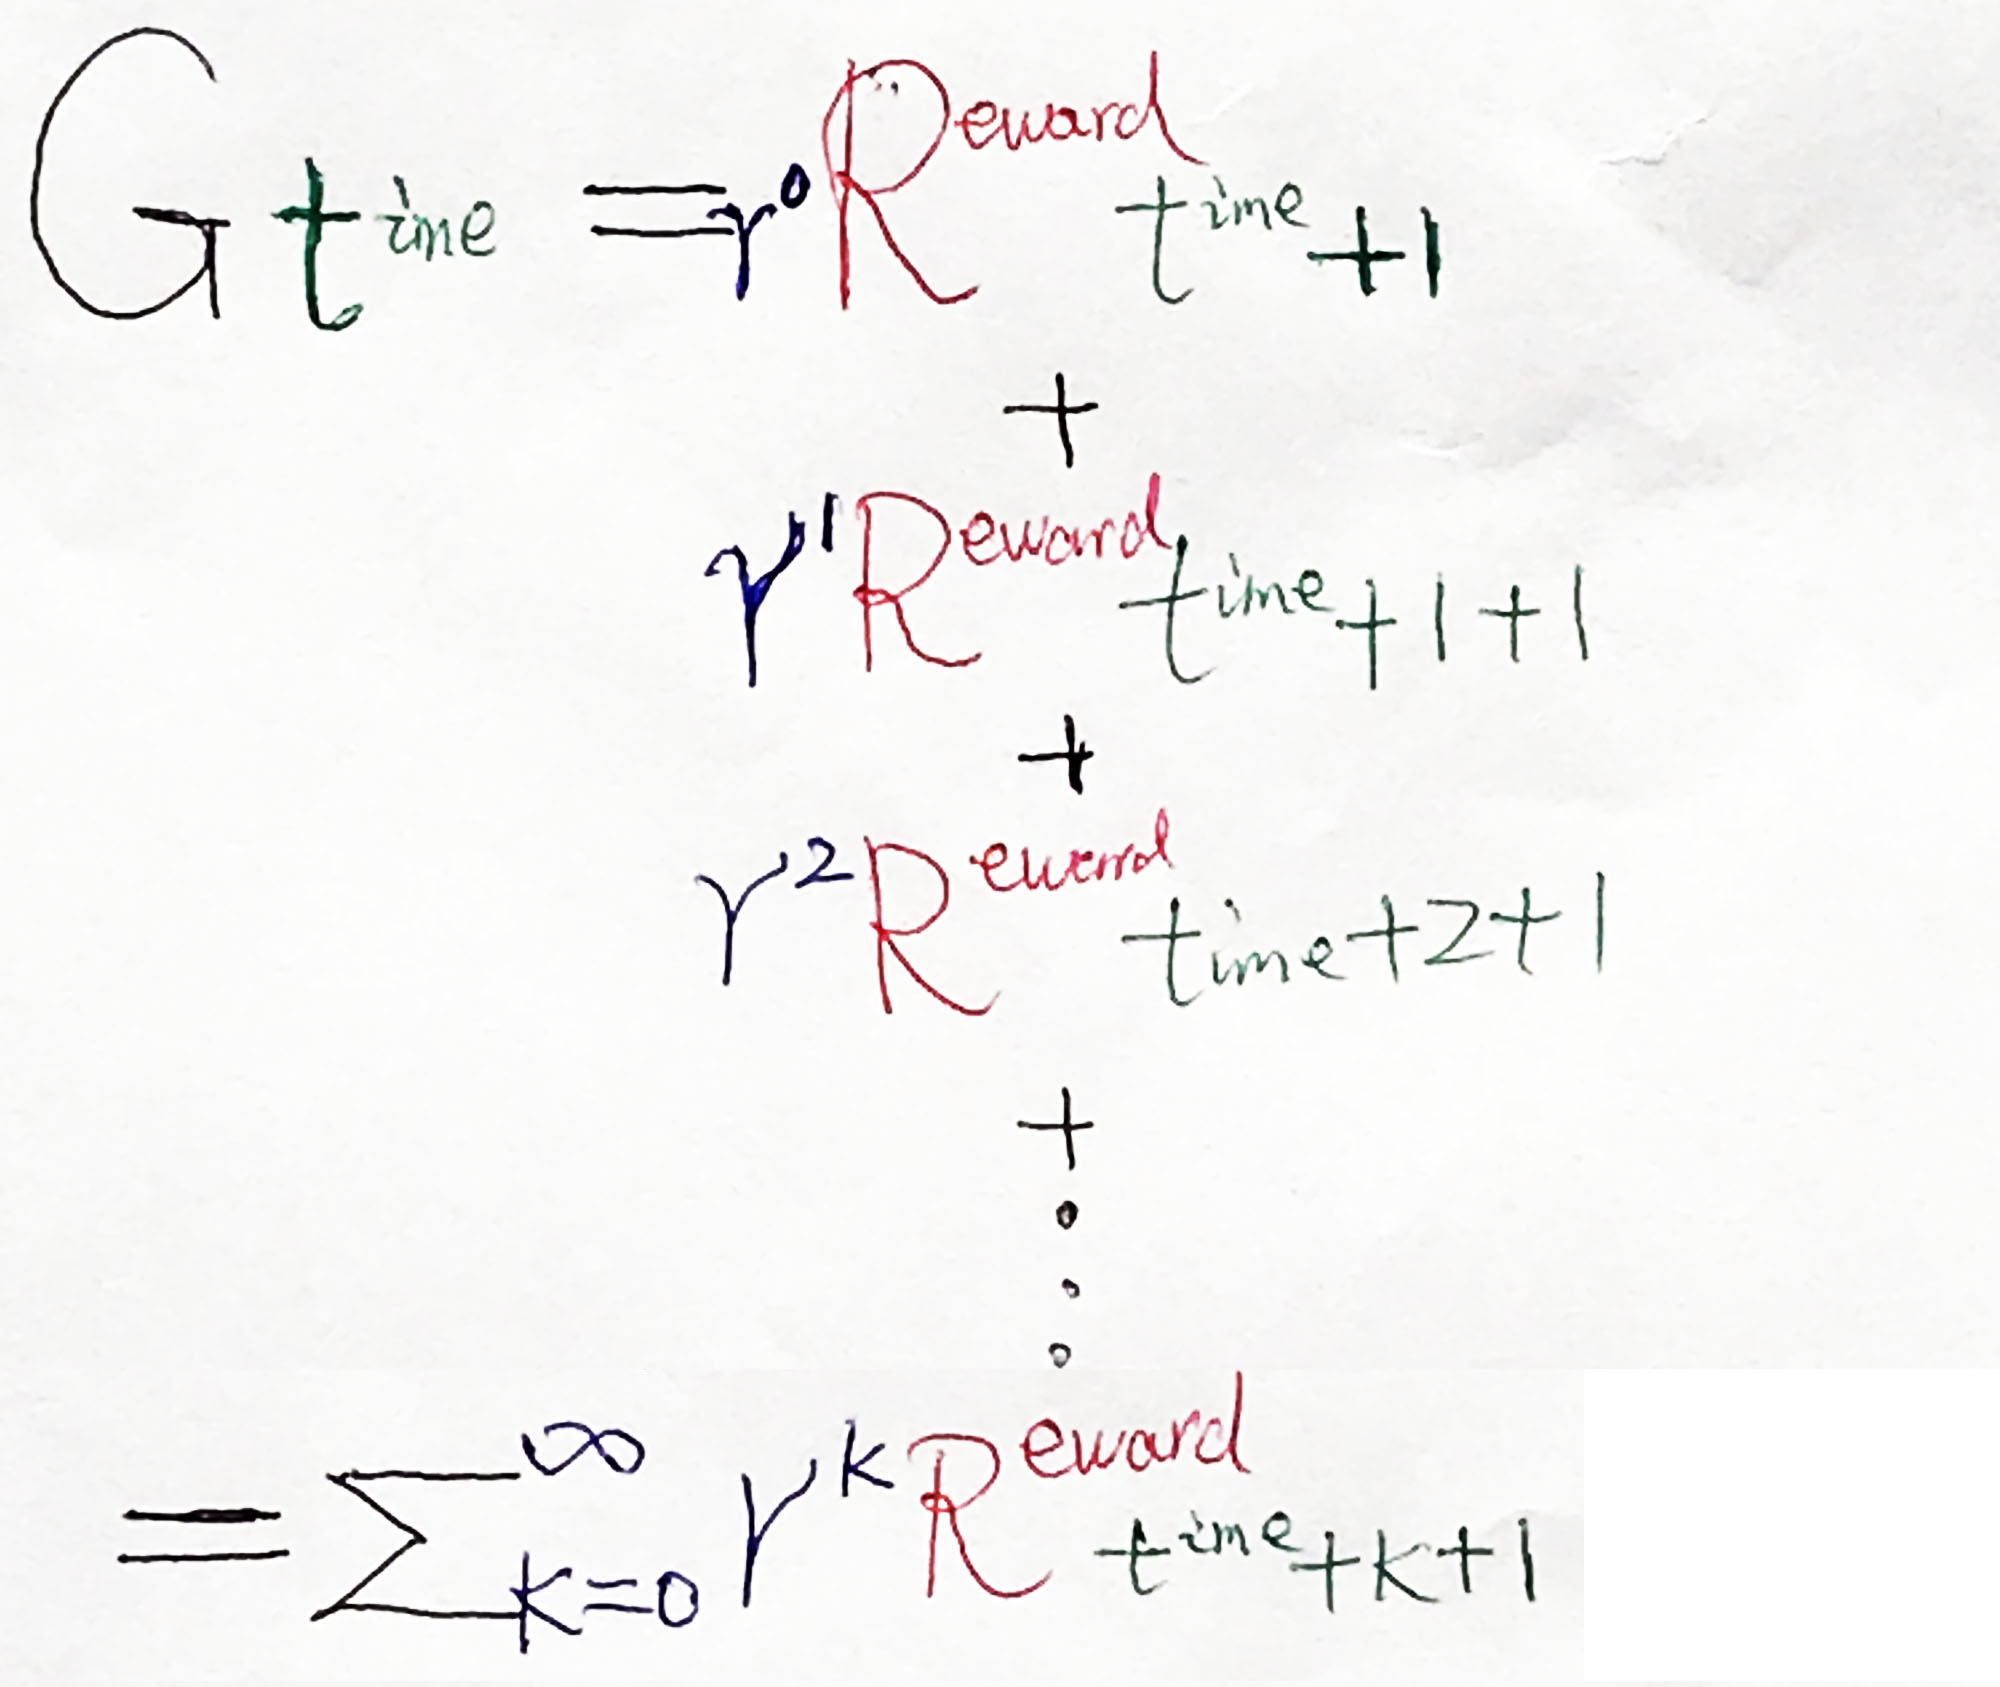 G time = γ⁰ Reward time+1
+
γ¹ Reward time+1+1
+
γ² Reward time+2+1
+
⋮
= ∑^∞ K=0 γᴷ Reward time+K+1